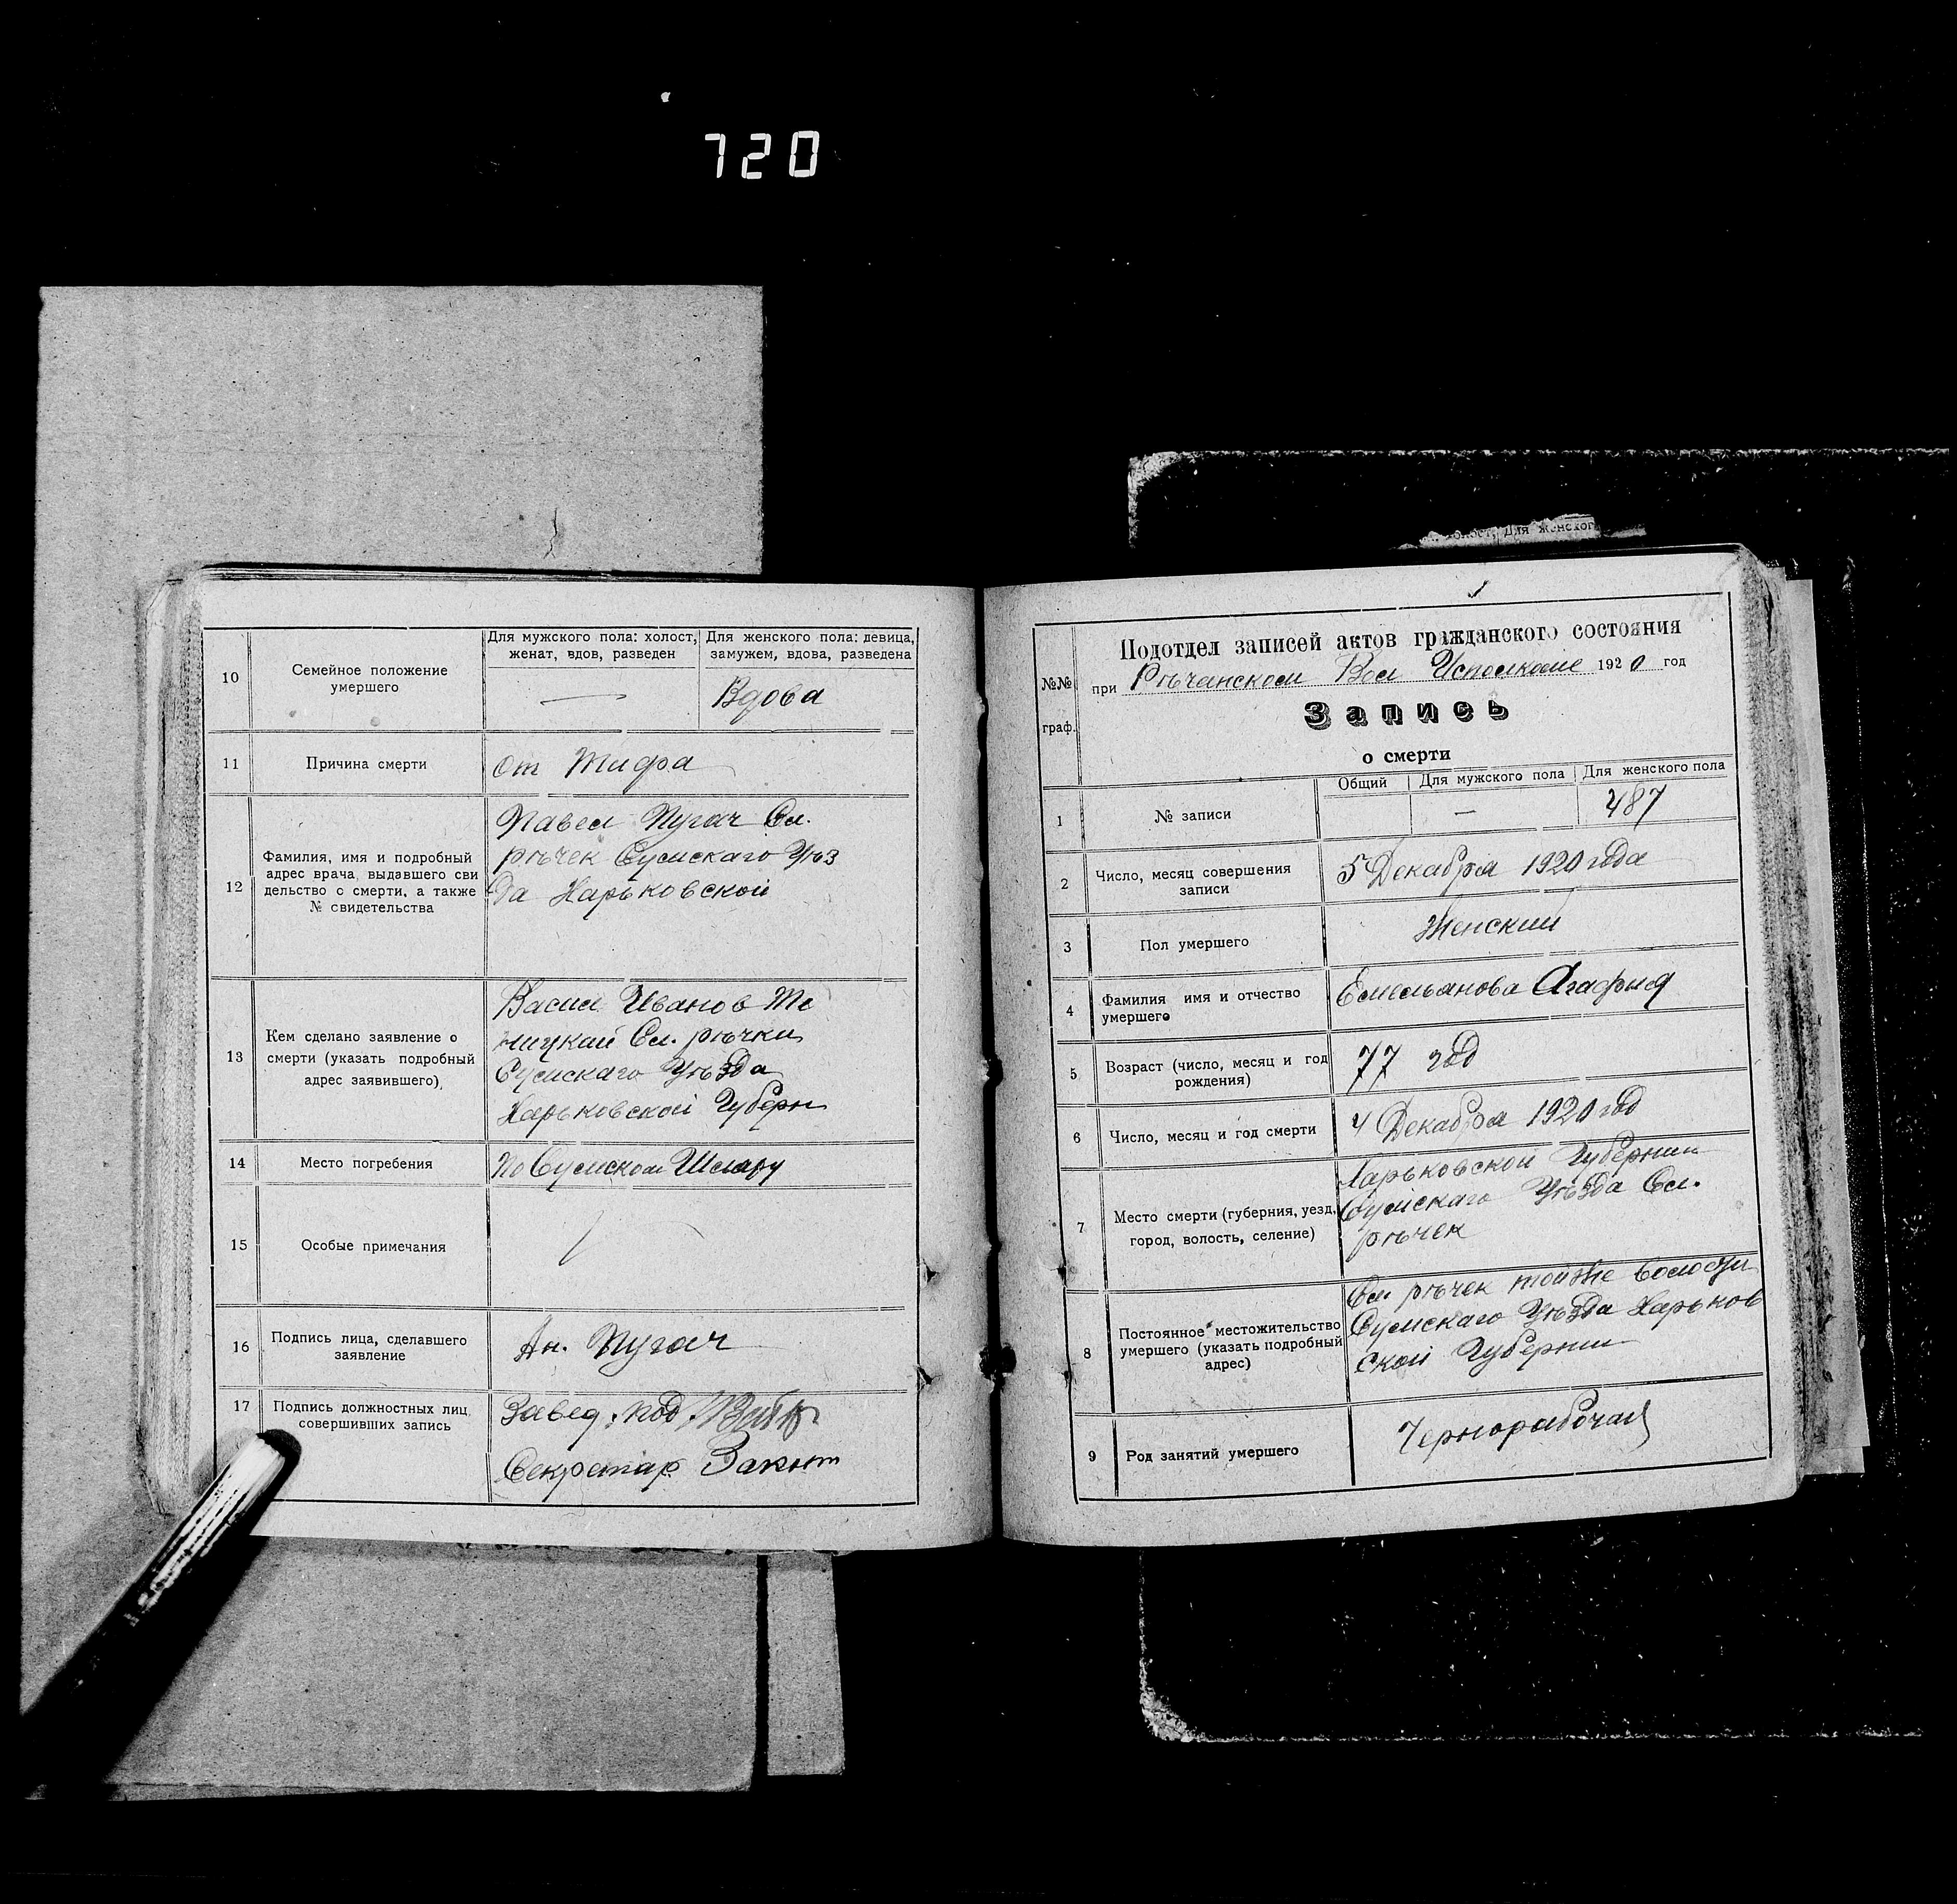 720
10
Семейное положение
умершего
Для мужского пола: холост,
женат, вдов, разведен
Для женского пола: девица,
замужем, вдова, разведена
—
Вдова
11
Причина смерти
от Тифа
12
Фамилия, имя и подробный
адрес врача, выдавшего сви
дельство о смерти, а также
№ свидетельства
Павел Пугач Сл.
рѣчек Сумскаго Уѣз
да Харьковской
13
Кем сделано заявление о
смерти (указать подробный
адрес заявившего)
Васил Иванов
Сл. рѣчки
Сумскаго Уѣзда
Харьковской Губерн
14
Место погребения
по Сумском Шляху
15
Особые примечания
16
Подпись лица, сделавшего
заявление
Ан. Пугач
17
Подпись должностных лиц
совершивших запись
Завед. под
Секретар
Для женског
№№
граф.
Подотдел записей актов гражданского состояния
при Рѣчанском Вол Исполкоме 1920 год
Запись
о смерти
1
№ записи
Общий
Для мужского пола
Для женского пола
—
487
2
Число, месяц совершения
записи
5 Декабря 1920 года
3
Пол умершего
Женский
4
Фамилия имя и отчество
умершего
Емельянова Агафия
5
Возраст (число, месяц и год
рождения)
77 год
6
Число, месяц и год смерти
4 Декабря 1920 год
7
Место смерти (губерния, уезд,
город, волость, селение)
Харьковской Губернии
Сумскаго Уѣзда Сл.
рѣчек
8
Постоянное местожительство
умершего (указать подробный
адрес)
Сл. рѣчек тойже волости
Сумскаго Уѣзда Харьков
ской Губернии
9
Род занятий умершего
Чернорабочая